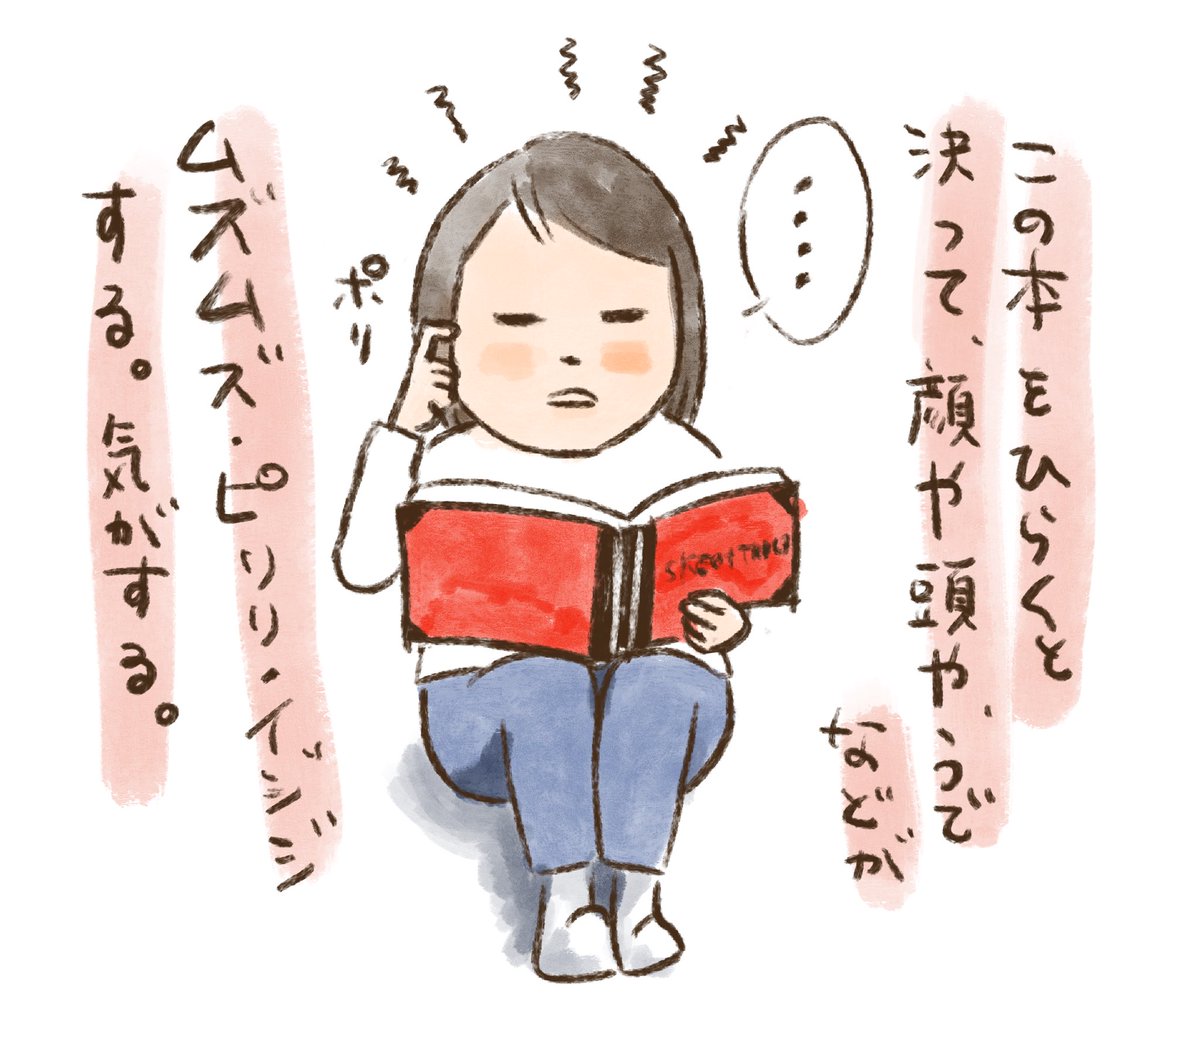 この本をひらくと
決って、顔や頭や、うで
などが
・・・・
ポリ
ムズムズ・ピリリ・イジジ
する。気がする。